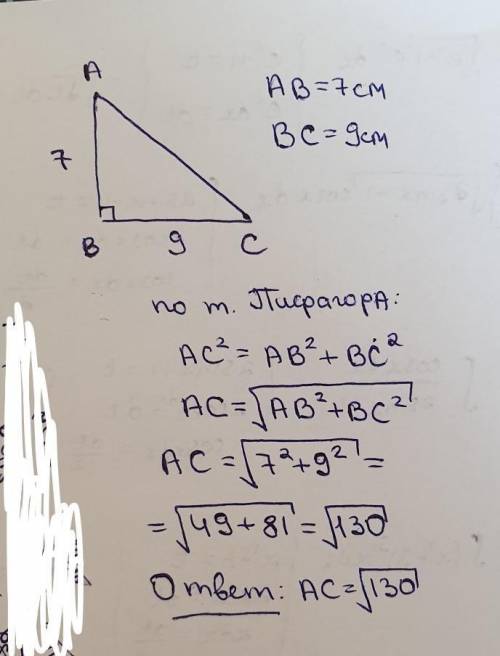 A
AB=7см
BC=9см
7
B 9 C
по т. Пифагора:
AC²=AB²+BC²
AC=√AB²+BC²
AC=√7²+9²=
=√49+81=√130
Ответ: AC=√130